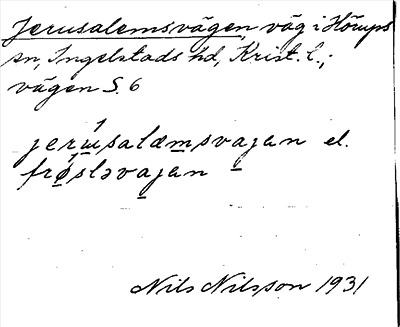 Jerusalemsvägen, väg i Hörups
sn, Ingelstads hd, Krist. l.;
vägen S. 6
jerusalæmsvajan el.
frøsləvajan
Nils Nilsson 1931